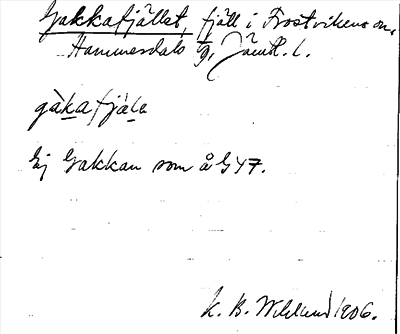 Gakkafjället, fjäll i Frostvikens sn,
Hammerdals tg, Jämtl. l.
gàkafjälle
Ej Gakkan som å G47.
K. B. Wiklund 1906.